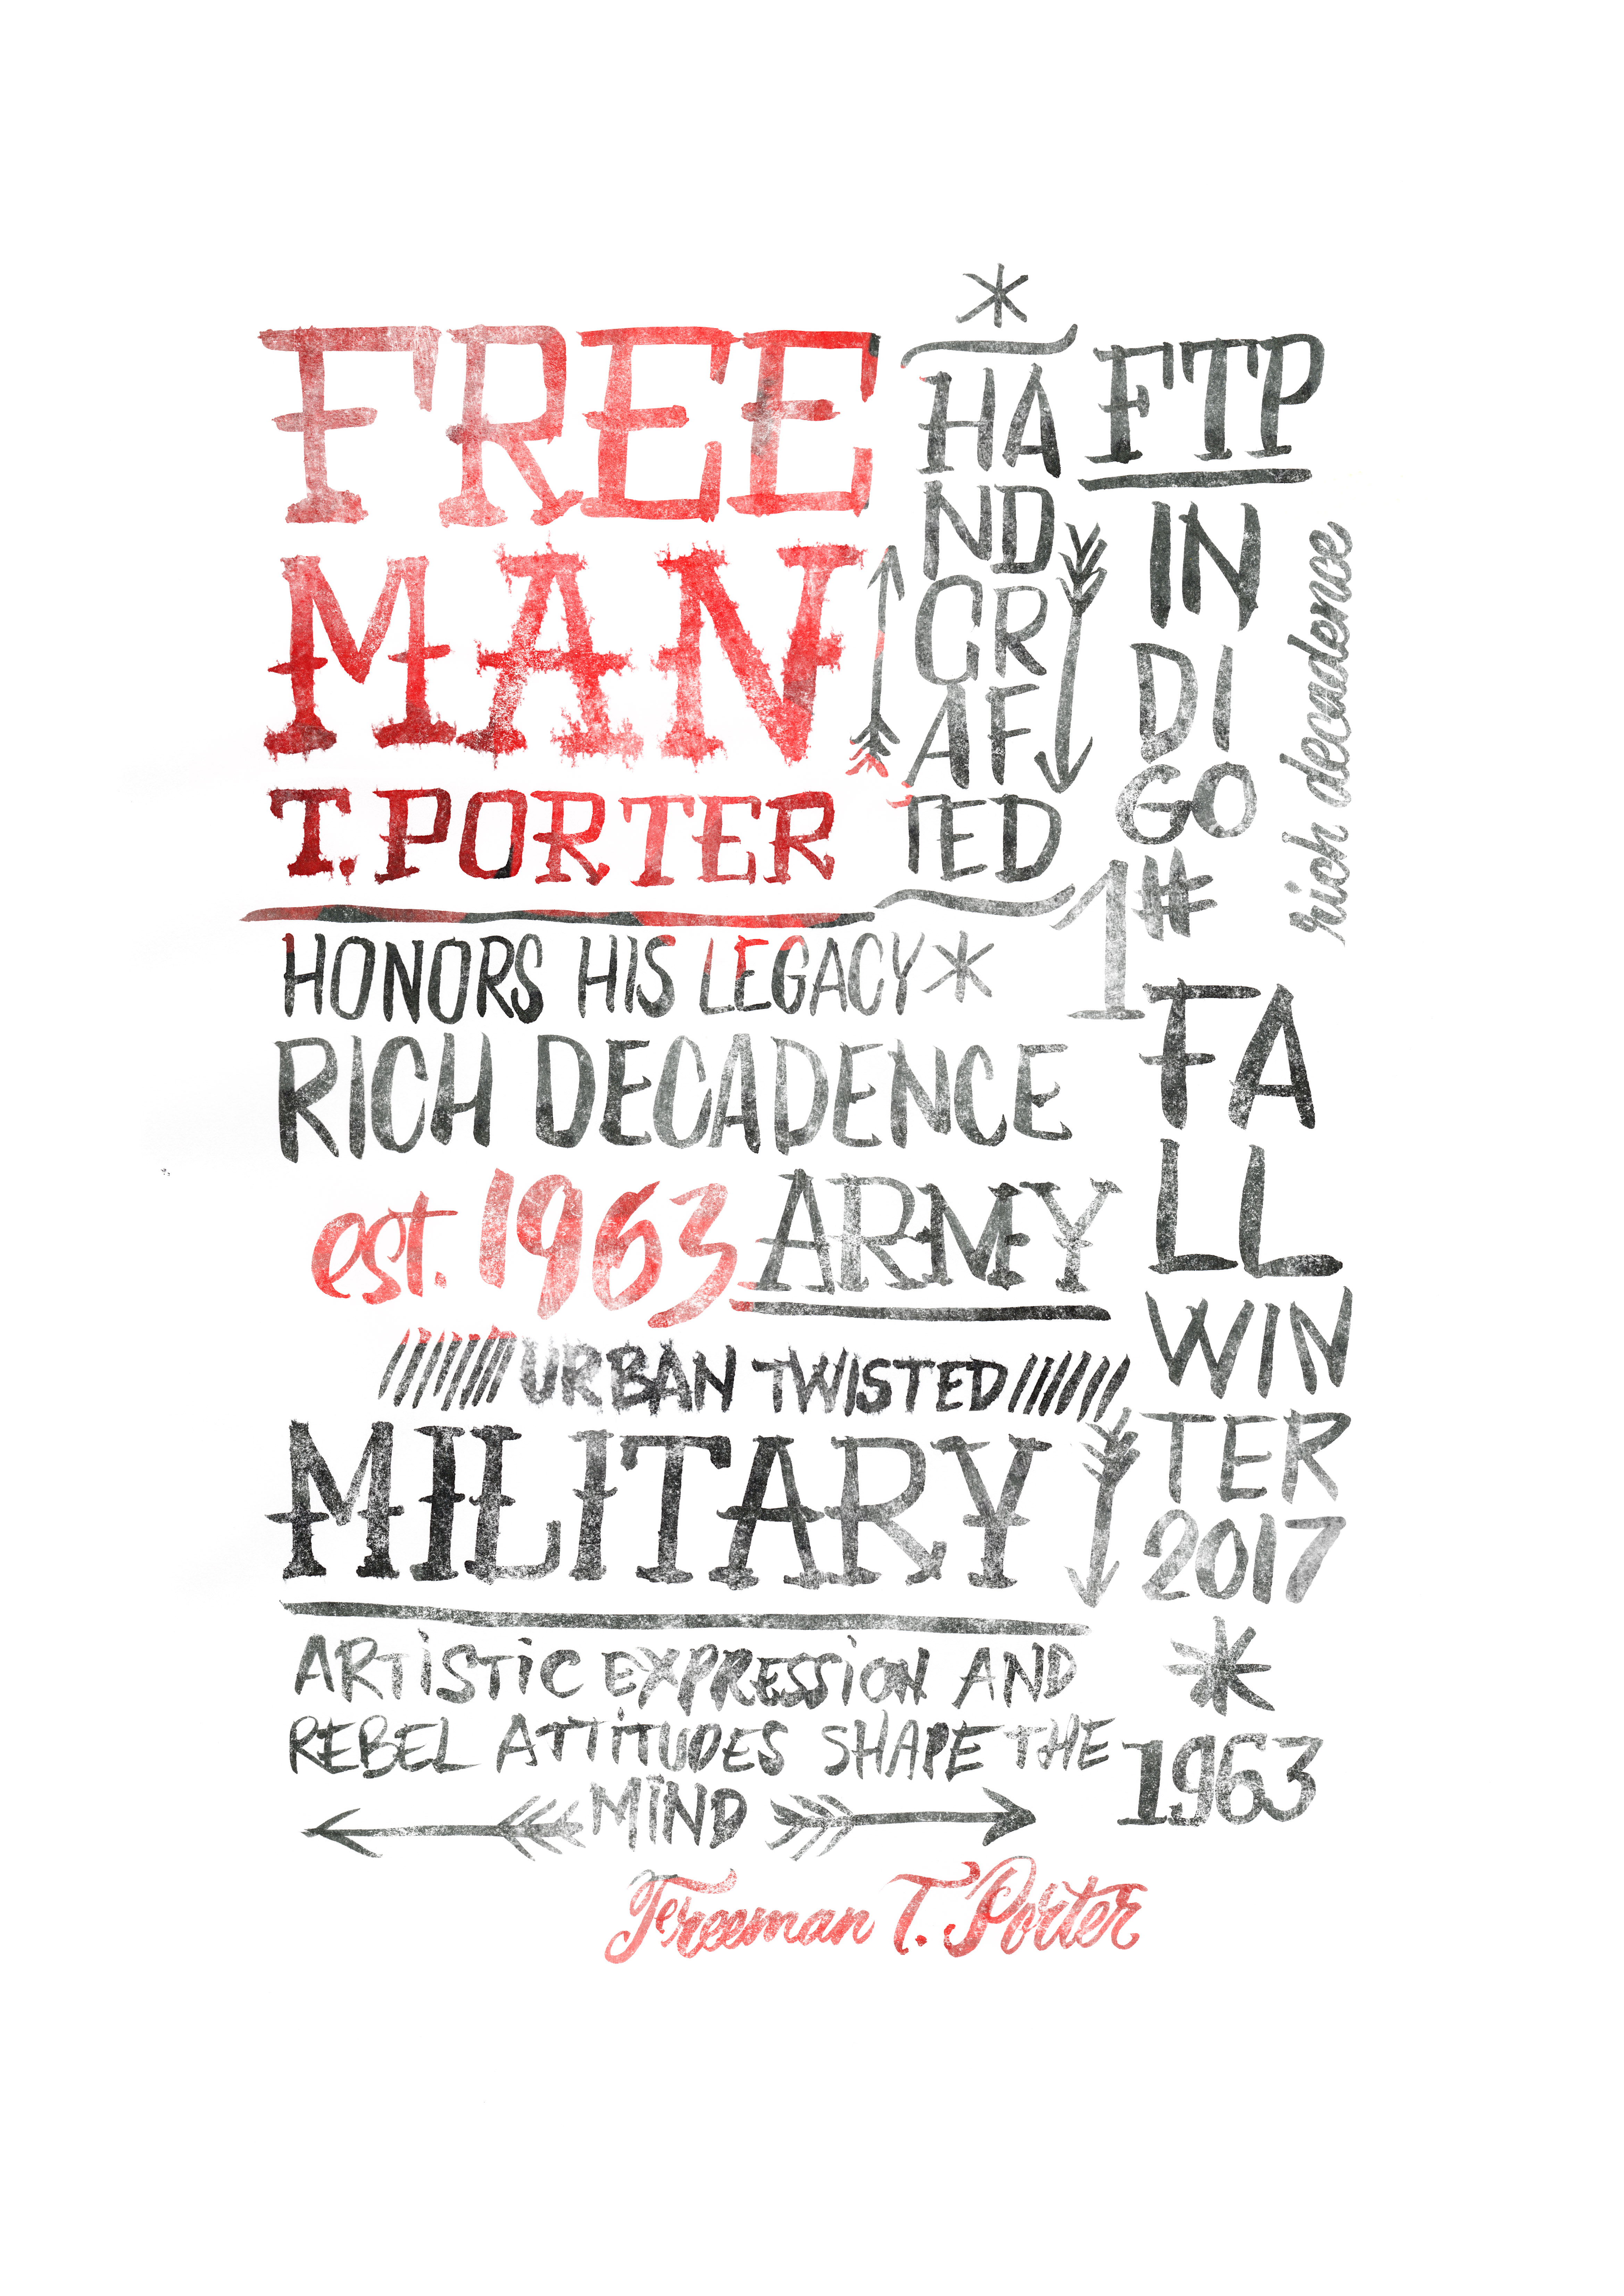 FREE
MAN
T. PORTER
HONORS HIS LEGACY*
RICH DECADENCE
est. 1963 ARMY
URBAN TWISTED
MILITARY
ARTISTIC EXPRESSION AND
REBEL ATTITUDES SHAPE THE
MIND
Freeman T. Porter
*
HA
ND
CR
AF
TED
FTP
IN
DI
GO
1#
rich decadence
FA
LL
WIN
TER
2017
*
1963